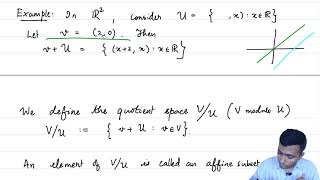 Example: In ℝ², consider U = { , x) : x ∈ ℝ}
Let v = (2,0). Then
v + U = {(x+2, x) : x ∈ ℝ}
We define the quotient space V/U (V modulo U)
V/U := { v + U : v ∈ V}.
An element of V/U is called an affine subset